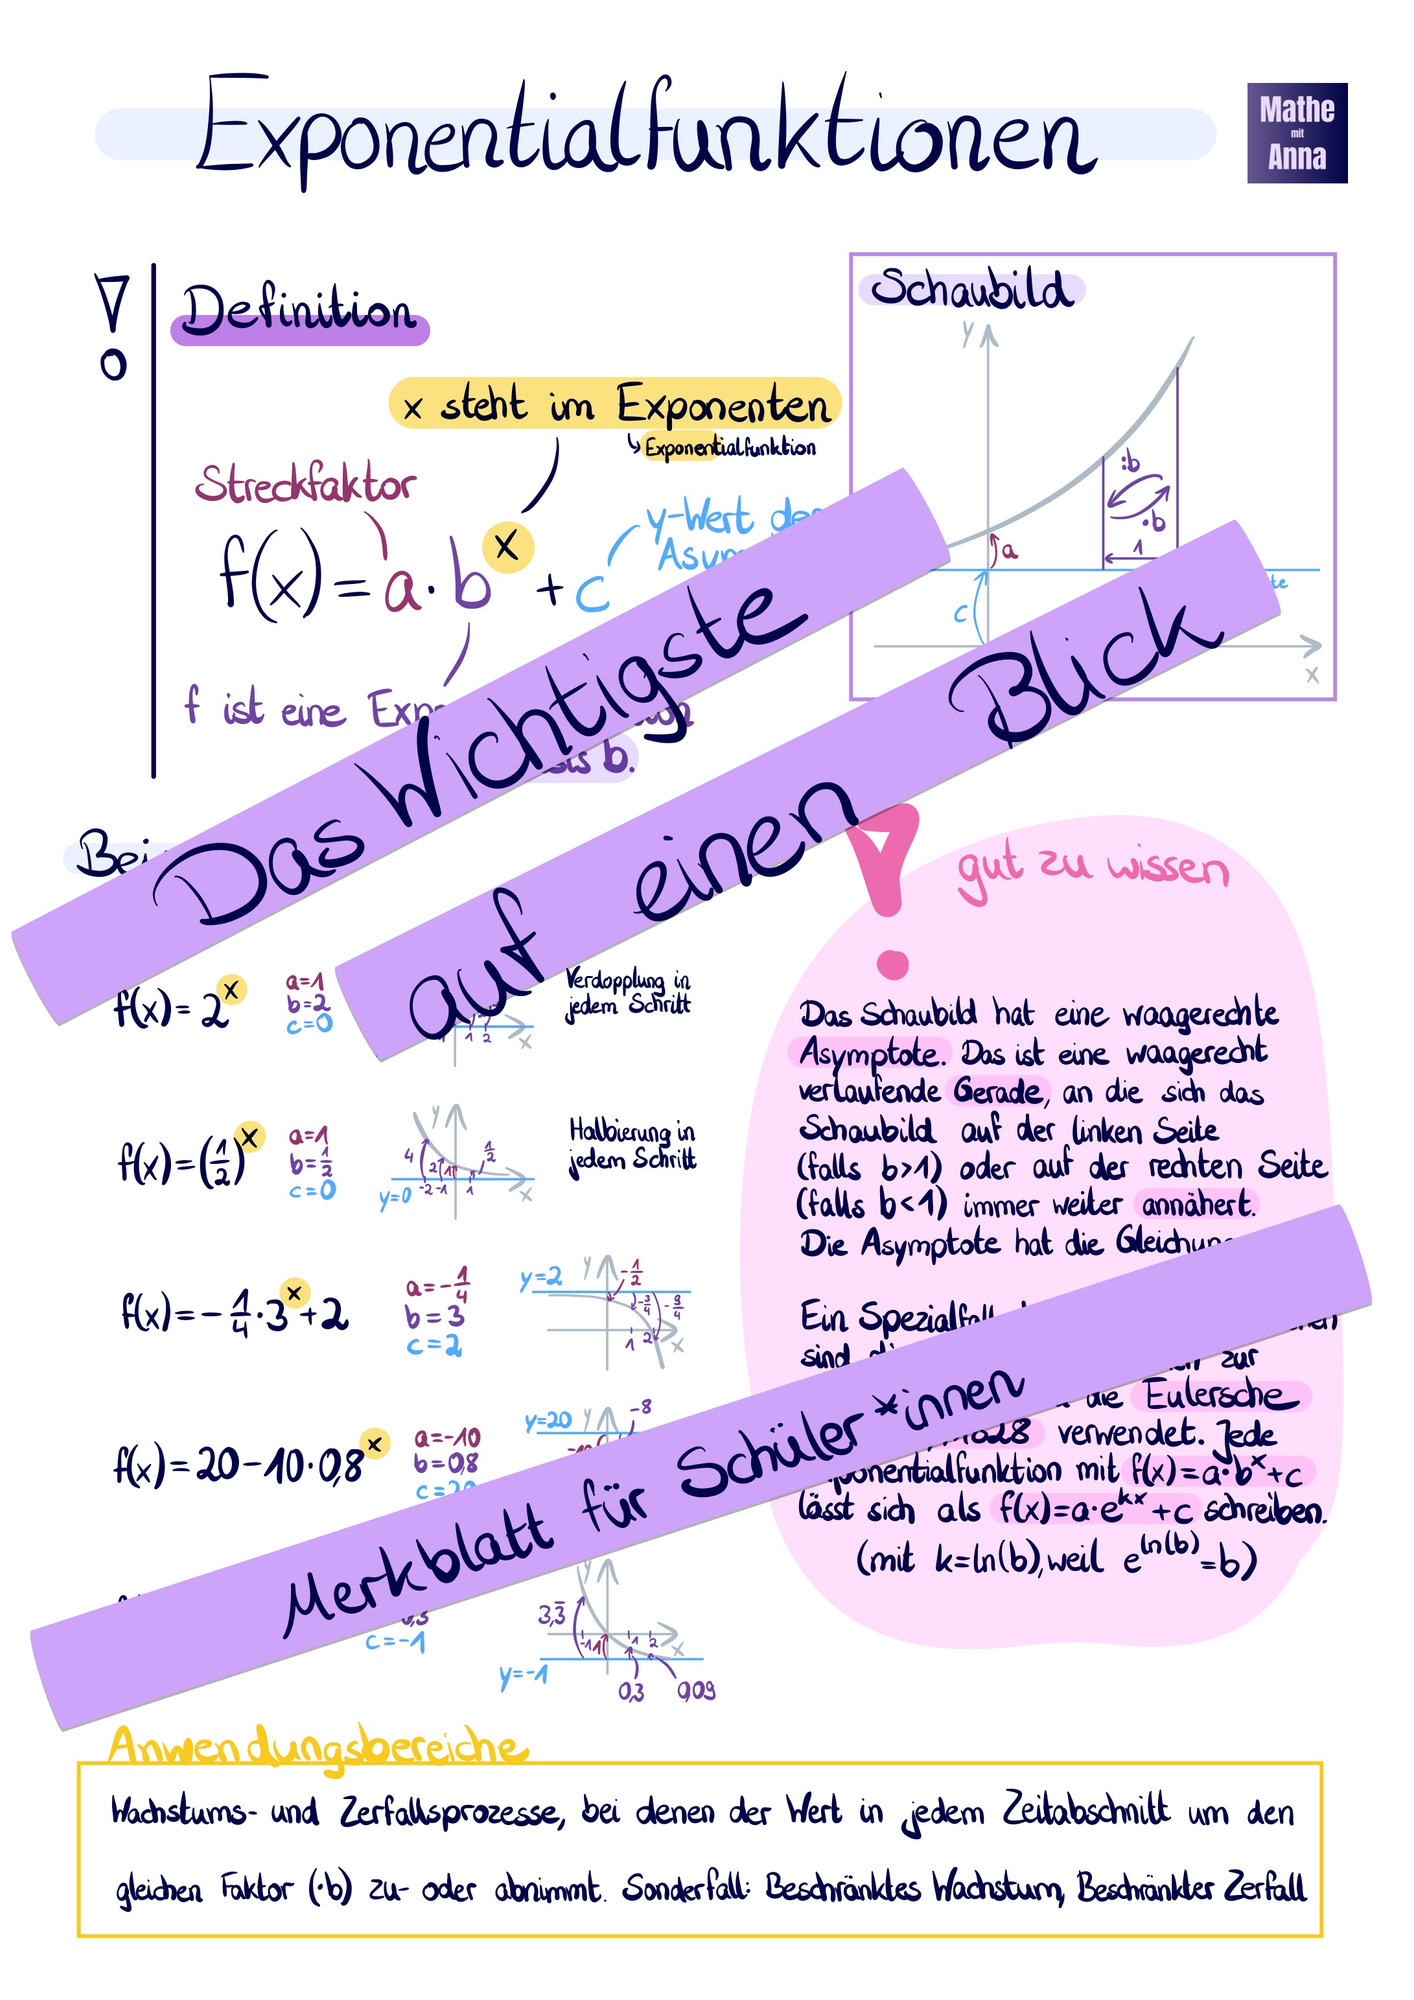 Exponentialfunktionen
Mathe
mit
Anna
Definition
x steht im Exponenten
↳ Exponentialfunktion
Streckfaktor
f(x) = a·b^x + c
y-Wert
f ist eine
b.
Schaubild
y
:b
·b
1
a
c
x
Das Wichtigste
auf einen Blick
f(x) = 2^x
a=1
b=2
c=0
1 2
x
Verdopplung in
jedem Schritt
f(x) = (1/2)^x
a=1
b=1/2
c=0
y
4
2
1
1/2
y=0
-2 -1 1
x
Halbierung in
jedem Schritt
f(x) = -1/4·3^x+2
a=-1/4
b=3
c=2
y=2
y
-1/2
-3/4
-9/4
1 2
x
f(x) = 20-10·0,8^x
a=-10
b=0,8
y=20
y
-8
c=-1
y
3,3̅
-1 1 1 2
x
y=-1
0,3
0,09
gut zu wissen
Das Schaubild hat eine waagerechte
Asymptote. Das ist eine waagerecht
verlaufende Gerade, an die sich das
Schaubild auf der linken Seite
(falls b>1) oder auf der rechten Seite
(falls b<1) immer weiter annähert.
Die Asymptote hat die
Ein
sind zur
die Eulersche
verwendet. Jede
mit f(x)=a·b^x+c
lässt sich als f(x)=a·e^kx+c schreiben.
(mit k=ln(b), weil e^ln(b)=b)
Merkblatt für Schüler*innen
Anwendungsbereiche
Wachstums- und Zerfallsprozesse, bei denen der Wert in jedem Zeitabschnitt um den
gleichen Faktor (·b) zu- oder abnimmt. Sonderfall: Beschränktes Wachstum, Beschränkter Zerfall